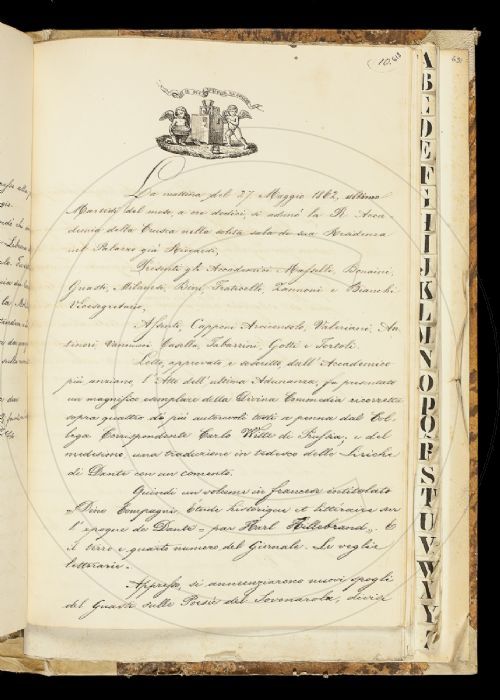 10.618
La mattina del 27 Maggio 1862, ultimo
Martedì del mese a ore dodici, si adunò la R. Acca-
demia della Crusca nella solita sala di sua Residenza
nel Palazzo già Riccardi,
Presenti gli Accademici Masselli, Bonaini,
Guasti, Milanesi, Bini, Fraticelli, Zannoni e Bianchi
Vicesegretario,
Assenti, Capponi Arciconsolo, Valeriani, An-
tinori, Vannucci Casella, Tabarrini, Gotti e Tortoli.
Letto, approvato e soscritto dall'Accademico
più anziano, l'Atto dell'ultima Adunanza, fu presentato
un magnifico esemplare della Divina Commedia ricorretta
sopra quattro dei più autorevoli testi a penna dal Col-
lega Corrispondente Carlo Witte di Prussia, e del
medesimo una traduzione in tedesco delle Liriche
di Dante con un comento.
Quindi un volume in francese intitolato
"Dino Compagni, Étude historique et littéraire sur
l'époque de Dante – par Karl Hillebrand„. E
il terzo e quarto numero del Giornale. Le veglie
letterarie.
Appresso, si annunziarono nuovi spogli
del Guasti sulle Poesie del Savonarola, dieci
A
B
C
D
E
F
G
H
I
J
K
L
M
N
O
P
Q
R
S
T
U
V
W
X
Y
Z